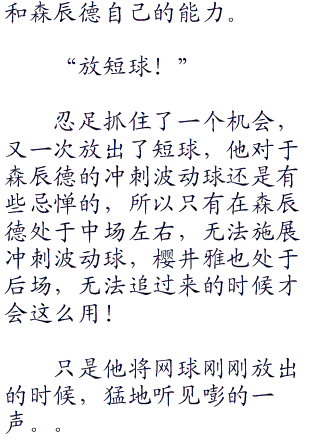 和森辰德自己的能力。
“放短球！”
忍足抓住了一个机会，
又一次放出了短球，他对于
森辰德的冲刺波动球还是有
些忌惮的，所以只有在森辰
德处于中场左右，无法施展
冲刺波动球，樱井雅也处于
后场，无法追过来的时候才
会这么用！
只是他将网球刚刚放出
的时候，猛地听见嘭的一
声。。